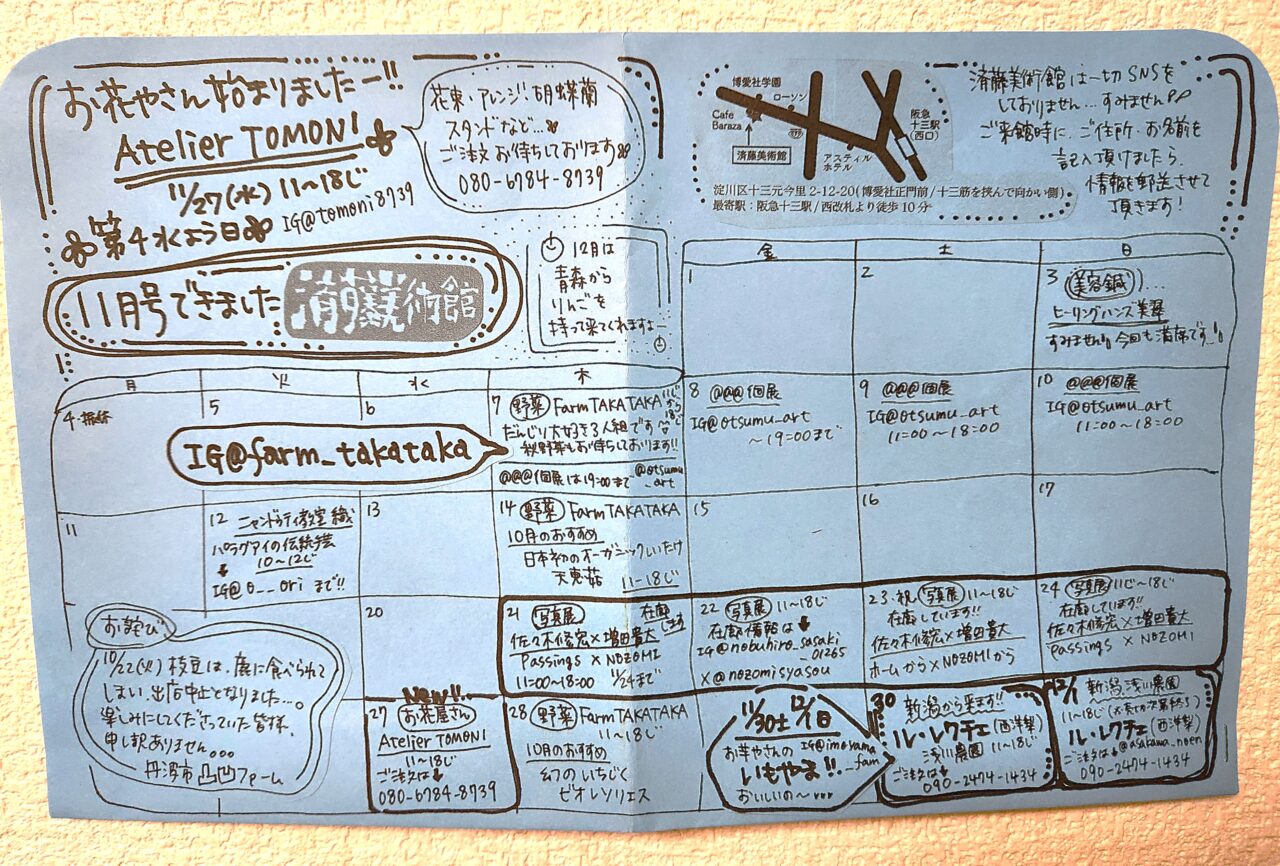 お花やさん始まりましたー!!
Atelier TOMONI
11/27(水) 11〜18じ
第4水よう日
IG@tomoni8739
花束・アレンジ・胡蝶蘭
スタンドなど…
ご注文お待ちしております
080-6784-8739
博愛社学園
ローソン
Cafe
Baraza
済藤美術館
アスティル
ホテル
阪急
十三駅
(西口)
淀川区十三元今里2-12-20(博愛社正門前/十三筋を挟んで向かい側)
最寄駅:阪急十三駅/西改札より徒歩10分
済藤美術館は一切SNSを
しておりません…すみません
ご来館時に、ご住所・お名前を
記入頂けましたら、
情報を郵送させて
頂きます!
11月号できました
済藤美術館
12月は
青森から
りんごを
持って来てくれますよー
月
火
水
木
金
土
日
1
2
3 美容鍼…
ヒーリングハンズ美翠
すみません!! 今回も満席です
4・振休
5
6
IG@farm_takataka
7 野菜 Farm TAKATAKA 11じから18じ
だんじり大好き3人組です
秋野菜もお待ちしております!!
@@@個展は19:00まで @otsumu_art
8 @@@個展
IG@otsumu_art
〜19:00まで
9 @@@個展
IG@otsumu_art
11:00〜18:00
10 @@@個展
IG@otsumu_art
11:00〜18:00
11
12 ニャンドゥティ教室 織
パラグアイの伝統手芸
10〜12じ
IG@o__ori まで!!
13
14 野菜 Farm TAKATAKA
10月のおすすめ
日本初のオーガニックしいたけ
天恵菇 11-18じ
15
16
17
お詫び
10/22(火) 枝豆は、鹿に食べられて
しまい、出店中止となりました…。
楽しみにしてくださっていた皆様、
申し訳ありません。。。
丹波市 凸凹ファーム
20
21 写真展 在廊します
佐々木修宏×増田貴大
Passings × NOZOMI
11:00〜18:00 11/24まで
22 写真展 11〜18じ
在廊情報は
IG@nobuhiro_sasaki
_01265
X@nozomisyasou
23・祝 写真展 11〜18じ
在廊しています!!
佐々木修宏×増田貴大
ホームから×NOZOMIから
24 写真展 11じ〜18じ
在廊しています!!
佐々木修宏×増田貴大
Passings × NOZOMI
New!!
27 お花屋さん
Atelier TOMONI
11〜18じ
ご注文は
080-6784-8739
28 野菜 Farm TAKATAKA
11〜18じ
10月のおすすめ
幻のいちじく
ビオレソリエス
11/30土 12/1日
お芋やさんの IG@imoyama_fam
いもやま!!
おいしいの〜
30 新潟から来ます!!
ル・レクチェ(西洋梨)
浅川農園 11〜18じ
ご注文は
090-2474-1434
12/1 新潟浅川農園
11〜18じ(×売切次第終了)
ル・レクチェ(西洋梨)
ご注文は @asakawa_noen
090-2474-1434